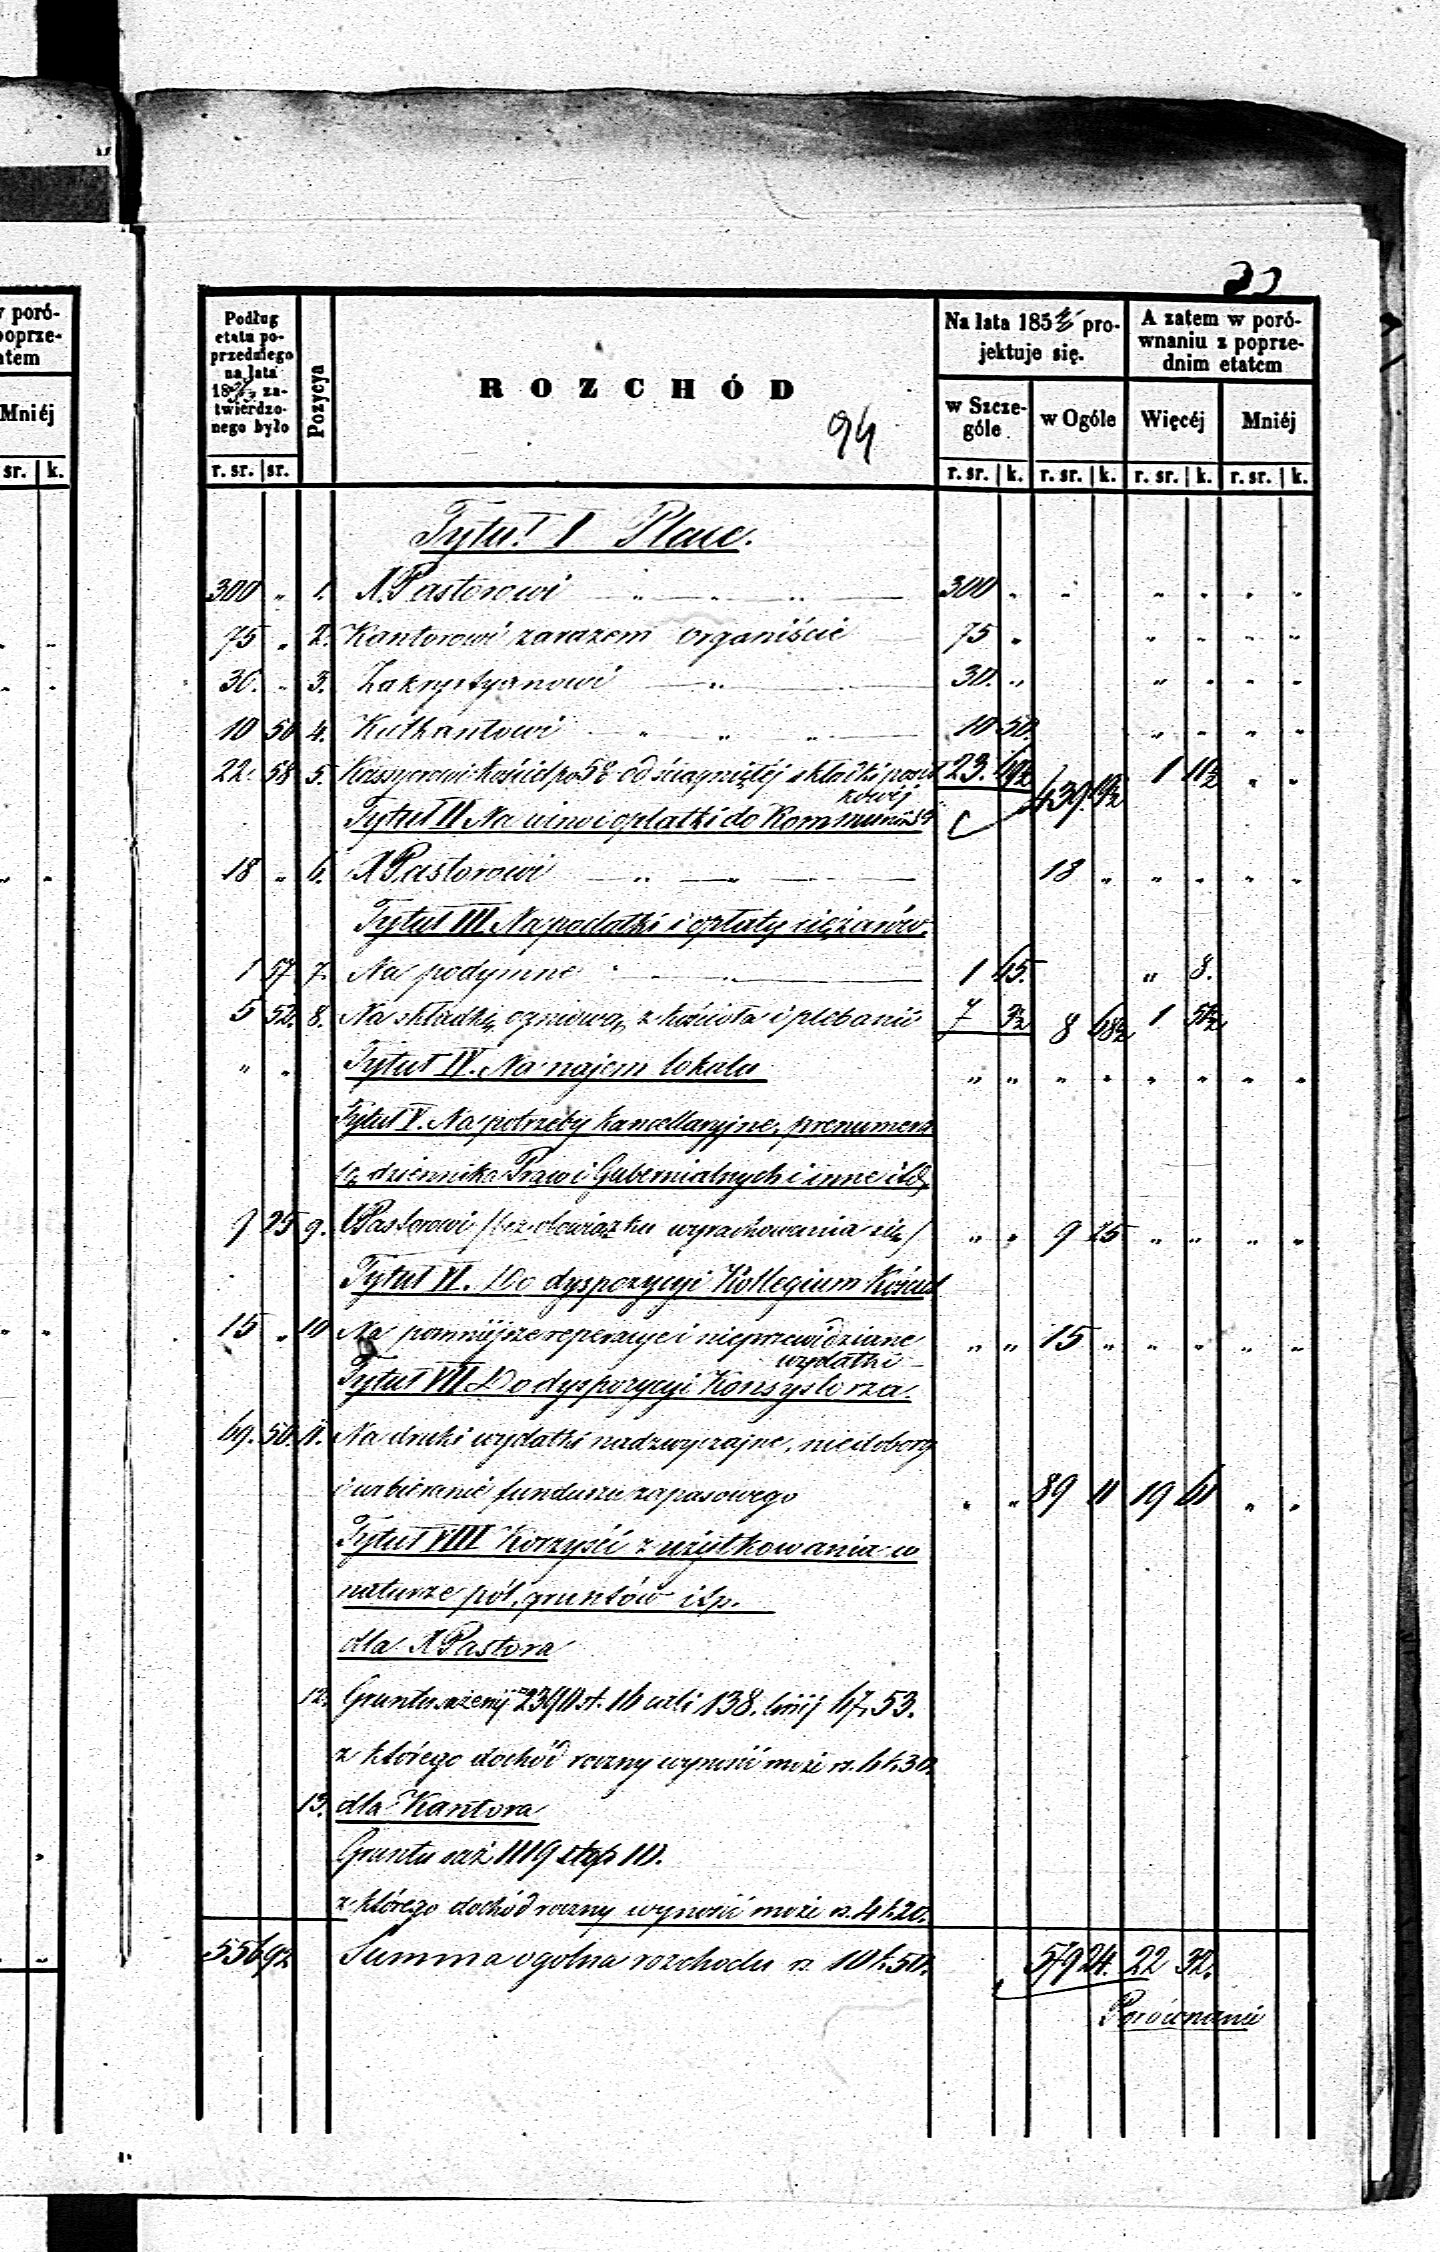 w poró-
poprze-
atem
Mniéj
sr. k.
Podług
etatu po-
przedniego
na lata
18 za-
twierdzo-
nego było
r. sr. sr.
Pozycya
ROZCHÓD
94
Na lata 185 pro-
jektuje się.
w Szcze-
góle
w Ogóle
r. sr. k. r. sr. k.
A zatem w poró-
wnaniu z poprze-
dnim etatem
Więcéj Mniéj
r. sr. k. r. sr. k.
Tytuł I Płace.
300 „ 1. X. Pastorowi „ „ „ 300 „ „ „ „ „ „
75 „ 2. Kantorowi zarazem organiście 75 „ „ „ „ „
30. „ 3. Zakrystyanowi „ 30. „ „ „ „ „
10 50 4. Kalkantowi „ „ „ 10 50. „ „ „ „
22. 58 5. Kassyerowi Kościel po 5% od ściągniętéj składki posił 23. 69½ 439. 19½ 1 11½ „ „
kowéj
Tytuł II Na wino i opłatki do Kommunii Sł
18 „ 6. X Pastorowi „ „ 18 „ „ „ „ „
Tytuł III Na podatki i opłaty ciężarów.
1 57 7. Na podymne „ „ 1 65. „ 8.
5 52. 8. Na składkę ogniową z kościoła i plebanii 7 3½ 8 68½ 1 51½
„ „ Tytuł IV. Na najem lokalu „ „ „ „ „ „ „ „
Tytuł V. Na potrzeby kancellaryjne, prenumera
tę dziennika Praw i Gubernialnych i inne itd.
9 25 9. X Pastorowi /bez obowiązku wyrachowania się/ „ „ 9 25 „ „ „ „
Tytuł VI. Do dyspozycyi Kollegium Kościel
15 „ 10 Na pomniejsze reperacye i nieprzewidziane „ „ 15 „ „ „ „ „
wydatki
Tytuł VII Do dyspozycyi Konsystorza.
69. 50. 11. Na druki wydatki nadzwyczajne, niedobory
i uzbieranie funduszu zapasowego „ „ 89 11 19 61 „ „
Tytuł VIII Korzyści z użytkowania w
naturze pól, gruntów itp.
dla X Pastora
12. Gruntu 2390 st. 16 cali 138. linij 67,53.
z którego dochód roczny wynosić może rs. 6 k. 30.
13. dla Kantora
Gruntu saż 1119 stóp 10.
z którego dochód roczny wynosić może rs. 4 k 20.
556 92 Summa ogólna rozchodu rs. 10 k. 50. 579 24. 22 32.
Porównanie